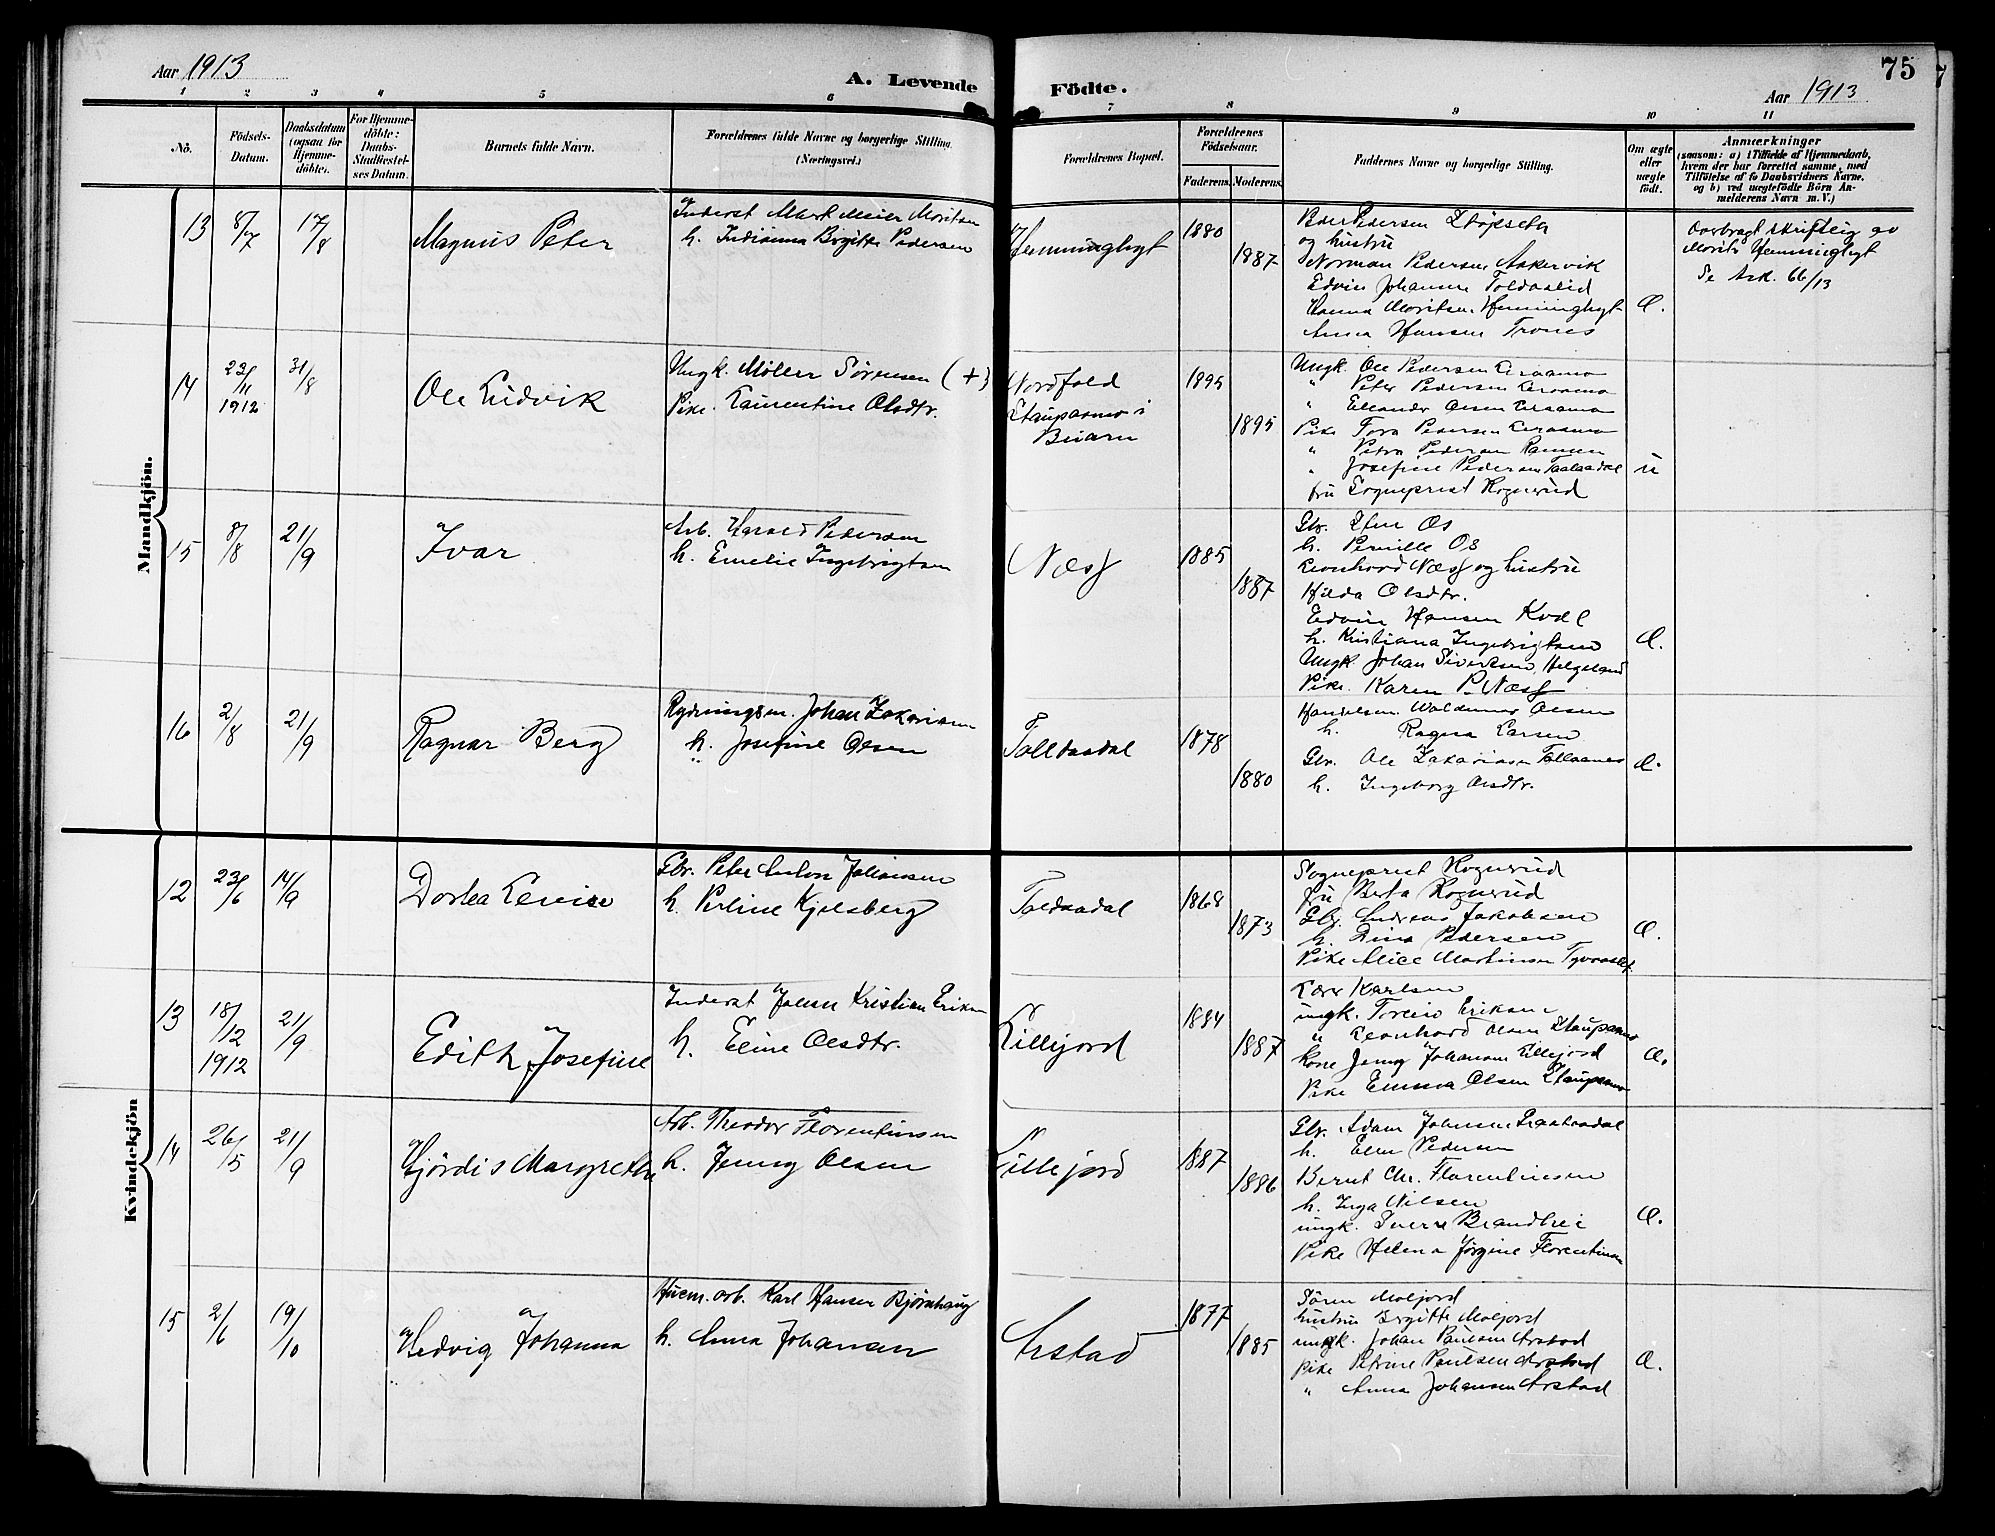 Aar 1913
A. Levende
Födte.
75
Aar 1913
1 2 3 4 5 6 7 8 9 10 11
Nò.
Födsels-
Datum.
Daabsdatum
(ogsaa for
Hjemme-
döbte).
For Hjemme-
döbte:
Daabs-
Stadfæstel-
ses Datum.
Barnets fulde Navn.
Forældrenes fulde Navne og borgerlige Stilling.
(Næringsvei.)
Forældrenes Bopæl.
Forældrenes
Födselsaar.
Faderens. Moderens.
Faddernes Navne og borgerlige Stilling.
Om ægte
eller
uægte
födt.
Anmærkninger
(saasom: a) i Tilfælde af Hjemmedaab,
hvem der har forrettet samme, med
Tilföielse af to Daabsvidners Navne,
og b) ved uægtefödte Börn An-
melderens Navn m. V.)
Mandkjön.
13 8/7 17/8 Magnus Peter
Inderst Mart Meier Moritsen
h. Indianna Birgitte Pedersen
Hemminghyt
1880
1887
Peder Pedersen
og hustru
Norman Pedersen Aakervik
Edvin Johansen Toldaalid
Hanna Moritsen Hemminghyt
Anna Hansen Trones
Æ.
skriftlig av
Morits Hemminghyt
Se Ark. 66/13
14 23/11 1912 31/8 Ole Ludvik
Ungk. Møller Sørensen (+)
Pike. Laurentine Olsdtr.
Nordfold
Staupaamo i
Beiarn
1895
1895
Ungk. Ole Pedersen
" Peter Pedersen
" Olsen
Pike Tora Pedersen
" Petra Pedersen
" Josefine Pedersen
fru Sogneprest Rognerud
u
15 8/8 21/9 Ivar
Arb. Harald Pedersen
h. Emelie Ingebrigtsen
Næss
1885
1887
Gbr. Sten Os
h. Pernille Os
Leonhard Næss og hustru
Hilda Olsdtr.
Edvin Hansen Kvæl
h. Kristiana Ingebrigtsen
Ungk. Johan Sivertsen Helgeland
Pike. Karen P. Næss
Æ.
16 2/8 21/9 Ragnar Berg
Rydningsm. Johan Zakariasen
h. Josefine Olsen
Tolldaadal
1878
1880
Handelsm. Waldemar Olsen
h. Ragna Larsen
Gbr. Ole Zakariasen Tollaanes
h. Ingeborg Olsdtr.
Æ.
Kvindekjön
12 23/6 14/9 Dortea Levise
Gbr. Peter Anton Johansen
h. Perline Kjelsberg
Toldaadal
1868
1873
Sogneprest Rognerud
fru Berta Rognerud
Gbr. Andreas Jakobsen
h. Dina Pedersen
Pike Alice Martinsen
Æ.
13 18/12 1912 21/9 Edith Josefine
Inderst Johan Kristian Eriksen
h. Eline Olsdtr.
Lillejord
1884
1887
Lærer Karlsen
ungk. Eriksen
" Leonhard Olsen Staupaamo
Kone Jenny Johansen Lillejord
Pike Emma Olsen Staupaamo
Æ.
14 26/5 21/9 Hjördis Margrethe
Arb. Theodor Florentinsen
h. Jenny Olsen
Lillejord
1887
1886
Gbr. Adam Johnsen
h. Elen Pedersen
Bernt Chr. Florentinsen
h. Inga Nilsen
ungk. Sverre Brandhei
Pike Helena Jørgine Florentinsen
Æ.
15 2/6 19/10 Hedvig Johanna
Husm. arb. Karl Hansen Bjørnhaug
h. Anna Johansen
Arstad
1877
1885
Søren Moljord
hustru Birgitte Moljord
ungk. Johan Paulsen Arstad
Pike Petrine Paulsen Arstad
" Anna Johansen Arstad
Æ.